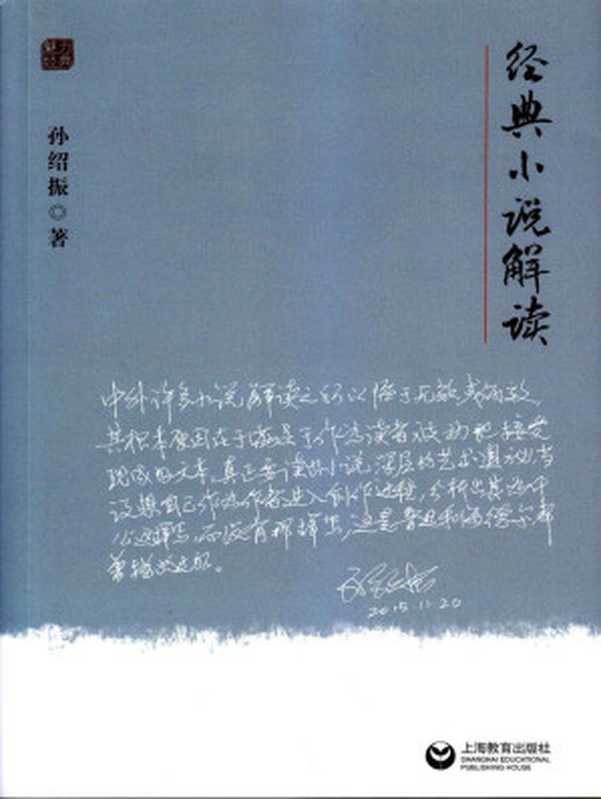 魅力
经典
经典小说解读
孙绍振◎著
中外许多小说解读之所以陷于无效或低效,
其根本原因在于满足于作为读者被动地接受
现成的文本,真正要读懂小说深层的艺术奥秘,当
设想自己作为作者进入创作过程,分析出其为什
么这样写,而没有那样写,这是鲁迅和海德格尔都
曾指出过的。
孙绍振
2015.11.20
上海教育出版社
SHANGHAI EDUCATIONAL
PUBLISHING HOUSE